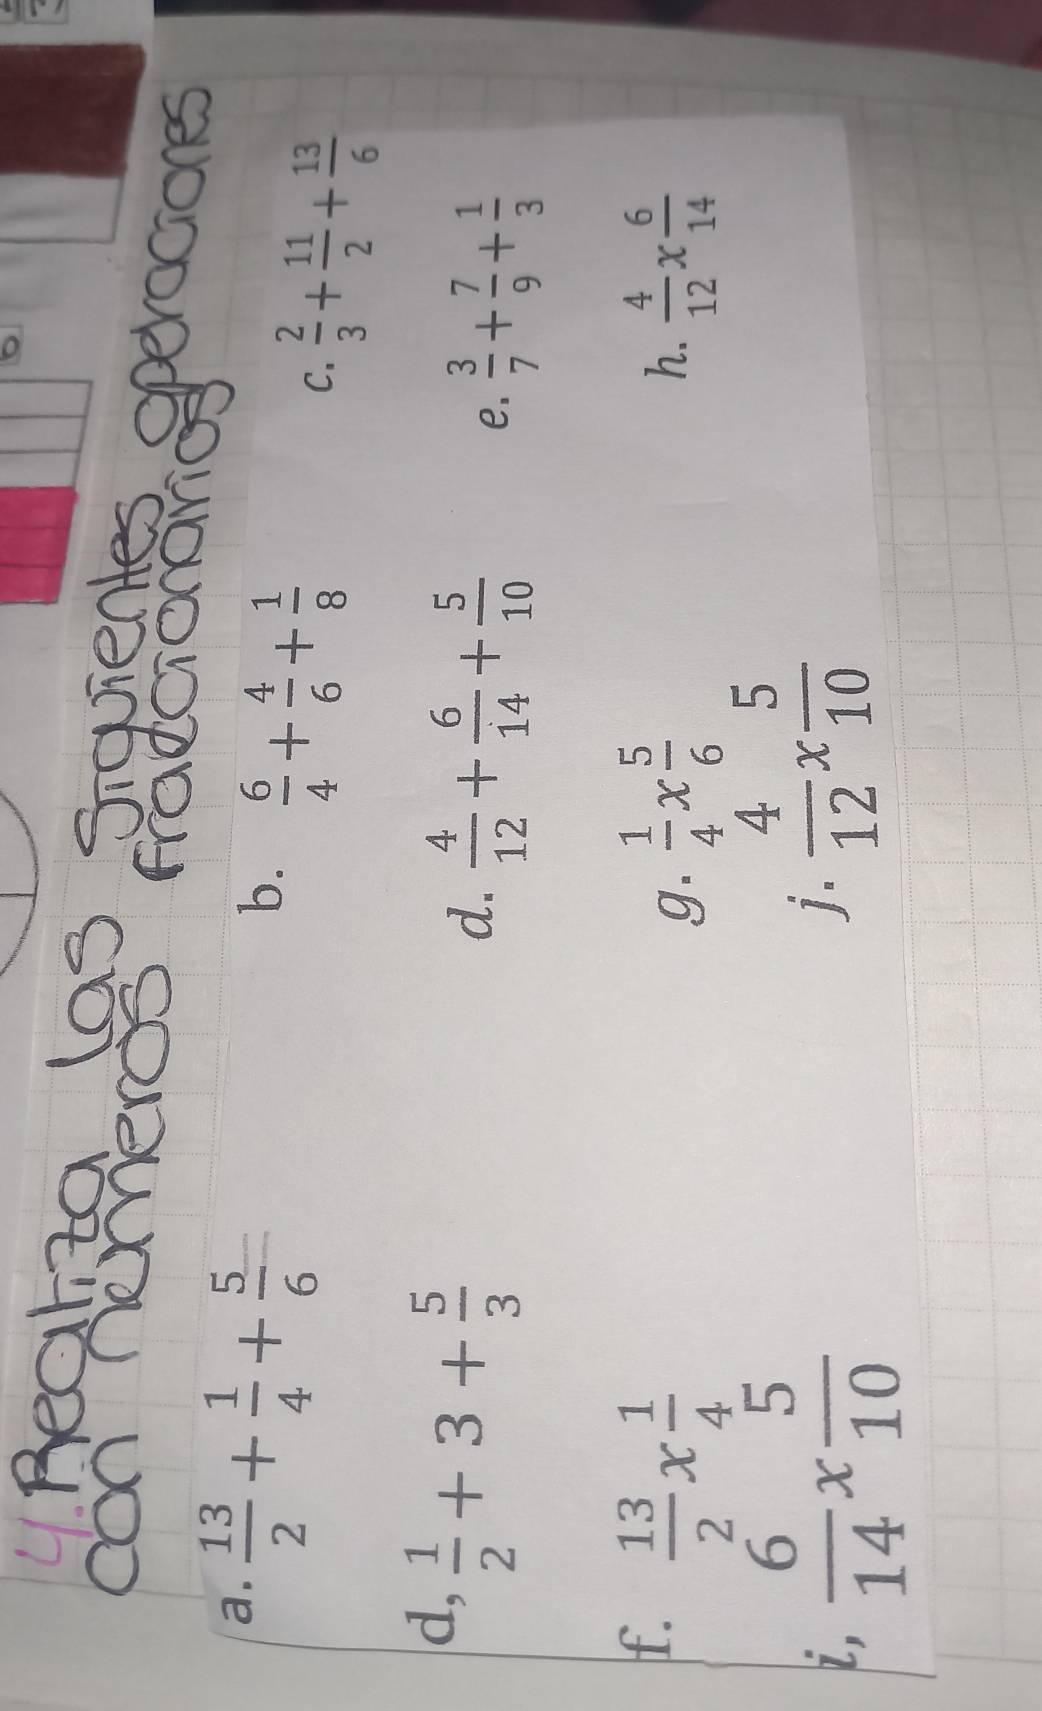 4. Realiza las siguientes operaciones
con números fraccionarios
a. 13/2 + 1/4 + 5/6 b. 6/4 + 4/6 + 1/8 c. 2/3 + 11/2 + 13/6
d, 1/2 + 3 + 5/3 d. 4/12 + 6/14 + 5/10 e. 3/7 + 7/9 + 1/3
f. 13/2 x 1/4 g. 1/4 x 5/6 h. 4/12 x 6/14
i, 6/14 x 5/10 j. 4/12 x 5/10